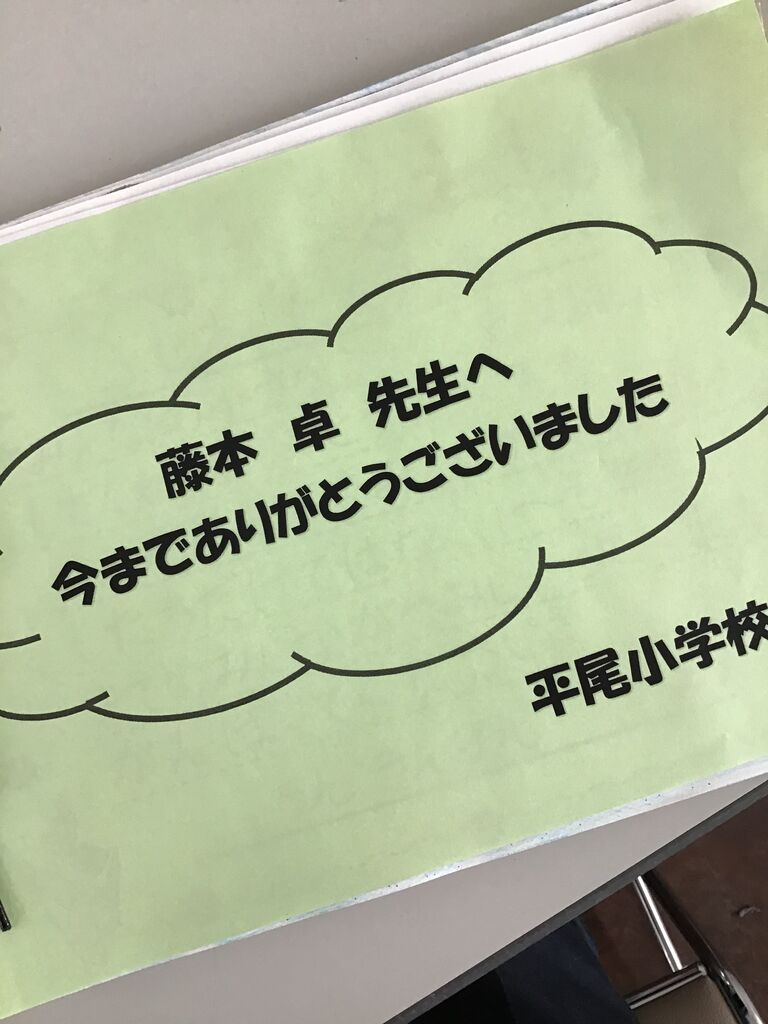 藤本 卓 先生へ
今までありがとうございました
平尾小学校